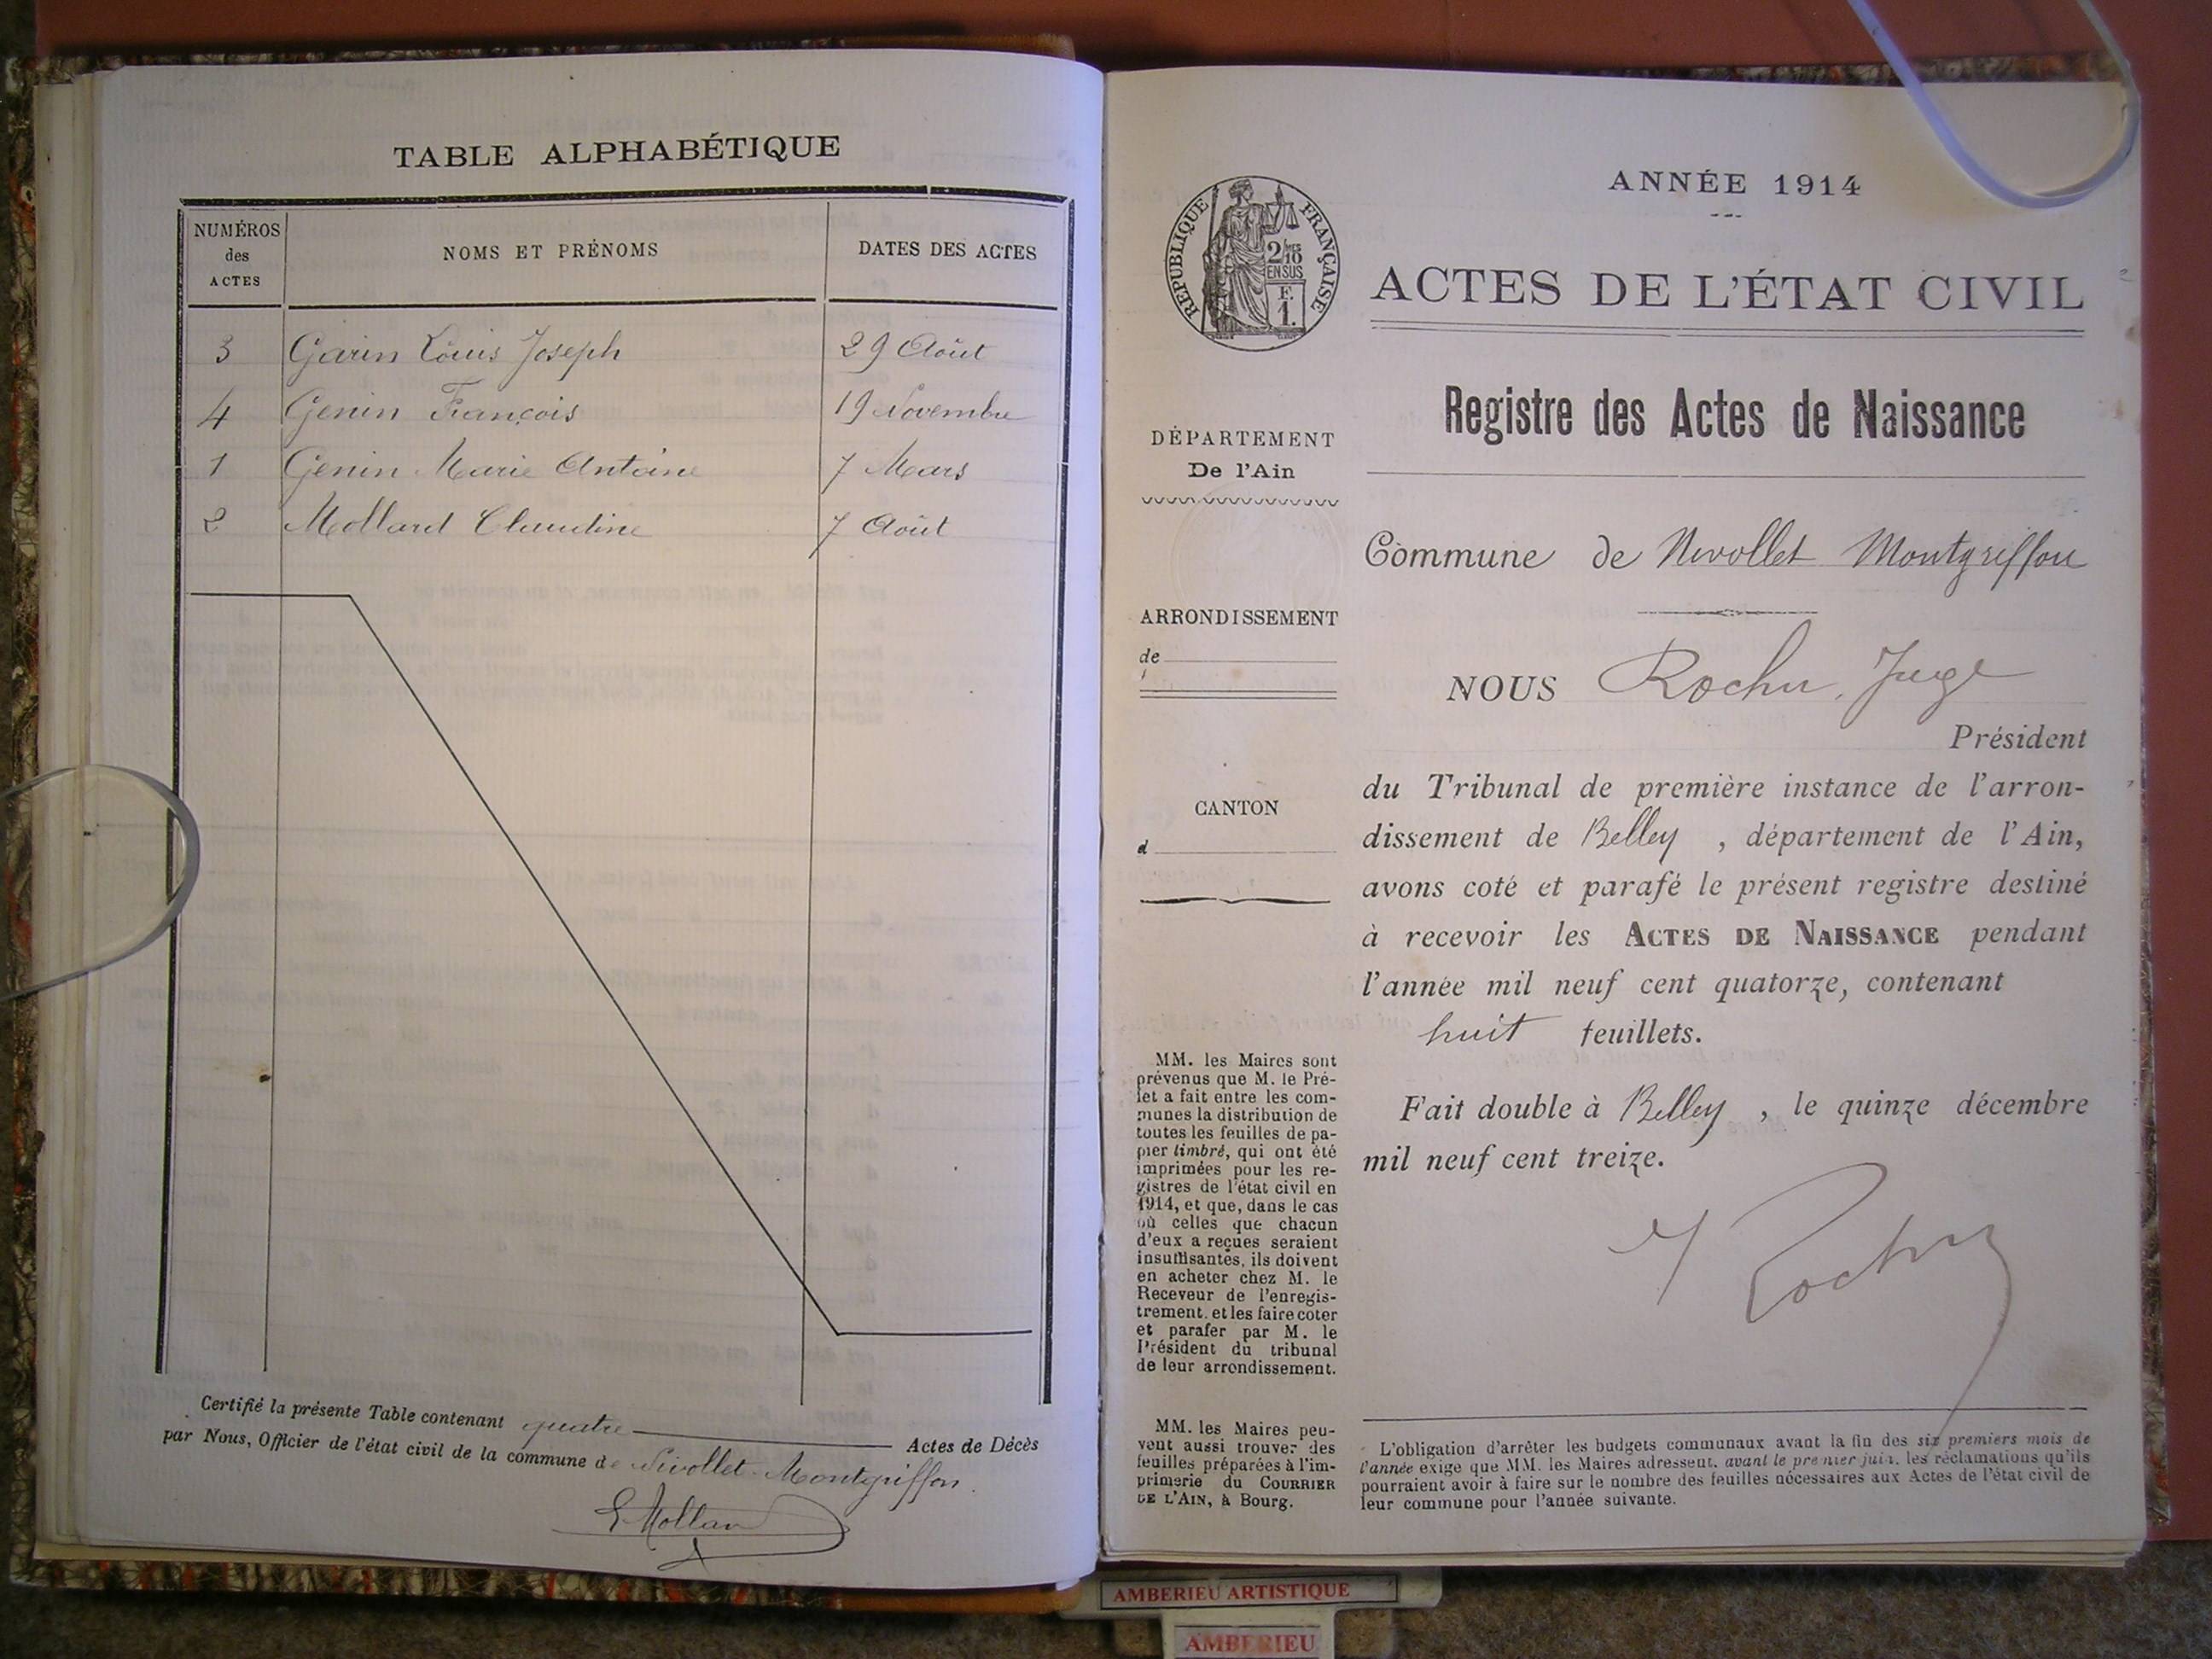 TABLE ALPHABÉTIQUE
NUMÉROS des ACTES NOMS ET PRÉNOMS DATES DES ACTES
3 Garin Louis Joseph 29 Août
4 Genin François 19 Novembre
1 Genin Marie Antoine 7 Mars
2 Mollard Claudine 7 Août
Certifié la présente Table contenant quatre Actes de Décès
par Nous, Officier de l'état civil de la commune de Nivollet-Montgriffon.
E. Mollard
RÉPUBLIQUE FRANÇAISE
2/10 MES
EN SUS
F.
1.
DÉPARTEMENT
De l'Ain
ARRONDISSEMENT
de
CANTON
d
MM. les Maires sont
prévenus que M. le Pré-
fet a fait entre les com-
munes la distribution de
toutes les feuilles de pa-
pier timbré, qui ont été
imprimées pour les re-
gistres de l'état civil en
1914, et que, dans le cas
où celles que chacun
d'eux a reçues seraient
insuffisantes, ils doivent
en acheter chez M. le
Receveur de l'enregis-
trement, et les faire coter
et parafer par M. le
Président du tribunal
de leur arrondissement.
MM. les Maires peu-
vent aussi trouver des
feuilles préparées à l'im-
primerie du COURRIER
DE L'AIN, à Bourg.
ANNÉE 1914
ACTES DE L'ÉTAT CIVIL
Registre des Actes de Naissance
Commune de Nivollet Montgriffon
NOUS Rochu, Juge
Président
du Tribunal de première instance de l'arron-
dissement de Belley , département de l'Ain,
avons coté et parafé le présent registre destiné
à recevoir les ACTES DE NAISSANCE pendant
l'année mil neuf cent quatorze, contenant
huit feuillets.
Fait double à Belley , le quinze décembre
mil neuf cent treize.
Rochu
L'obligation d'arrêter les budgets communaux avant la fin des six premiers mois de
l'année exige que MM. les Maires adressent, avant le premier juin, les réclamations qu'ils
pourraient avoir à faire sur le nombre des feuilles nécessaires aux Actes de l'état civil de
leur commune pour l'année suivante.
AMBERIEU ARTISTIQUE
AMBERIEU